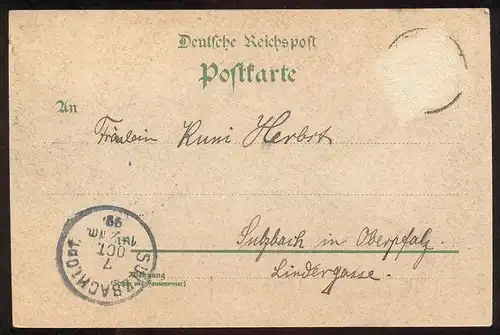 Deutsche Reichspost
Postkarte
An
Fräulein Kuni Herbst
Sulzbach in Oberpfalz
Lindergasse.
Wohnung
(Straße und Hausnummer)
SULZBACH i. OPf.
7
OCT.
98